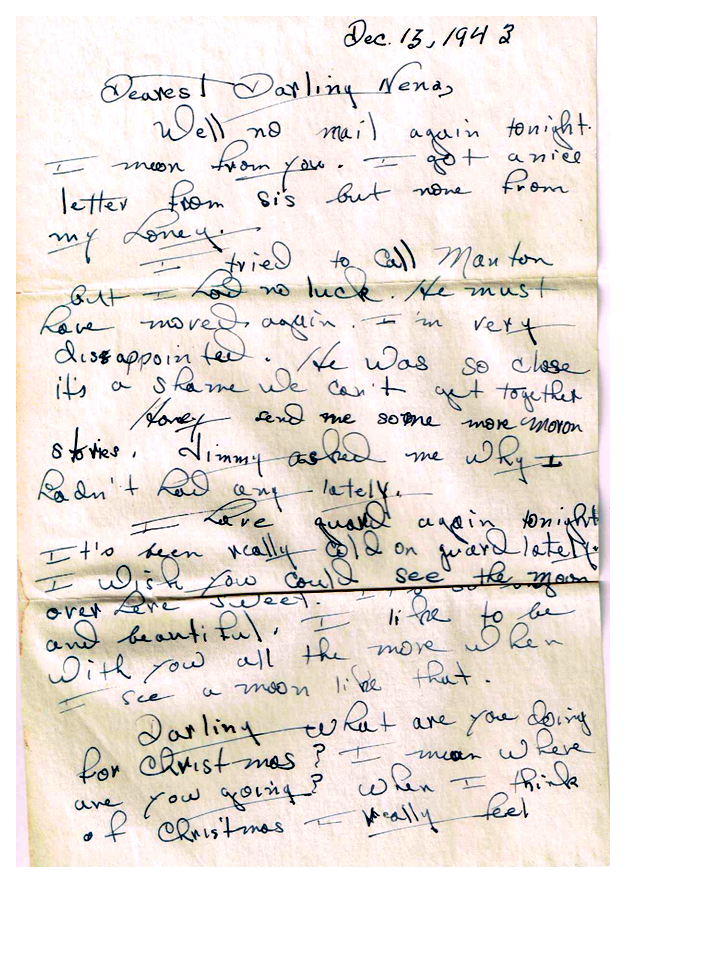 Dec. 13, 1943
Dearest Darling Nena,
Well no mail again tonight.
I mean from you. I got a nice
letter from sis but none from
my honey.
I tried to call Manton
but I had no luck. He must
have moved again. I'm very
dissappointed. He was so close
it's a shame we can't get together
Honey send me some more moron
stories. Jimmy asked me why I
hadn't had any lately.
I have guard again tonight
It's been really cold on guard lately.
I wish you could see the moon
over here sweet.
and beautiful. I like to be
with you all the more when
I see a moon like that.
Darling what are you doing
for Christmas? I mean where
are you going? When I think
of Christmas I really feel